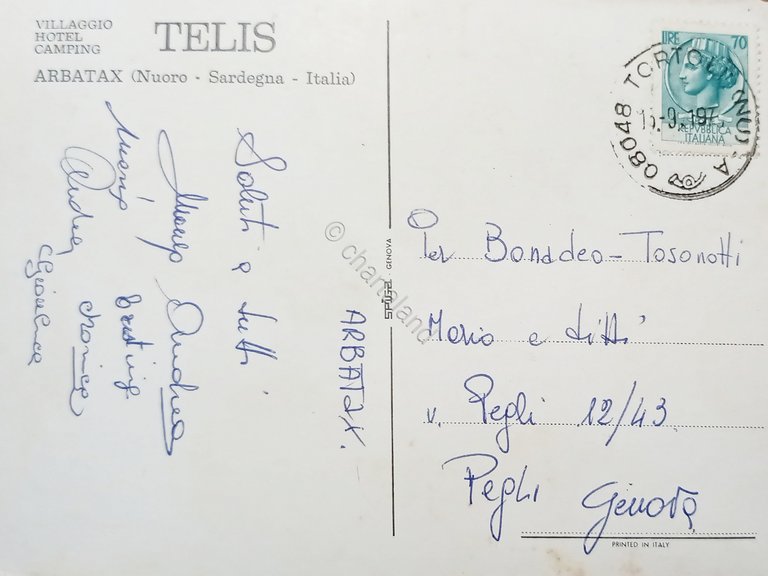 VILLAGGIO
HOTEL
CAMPING
TELIS
ARBATAX (Nuoro - Sardegna - Italia)
Saluti a tutti
Andrea
Monica
ARBATAX.
© chartaland
GENOVA
LIRE 70
REPVBBLICA
ITALIANA
08048 TORTOLI' (NU) A
Per Bonadeo-Tosonotti
Mario e tutti
v. Pegli 12/43
Pegli Genova
PRINTED IN ITALY